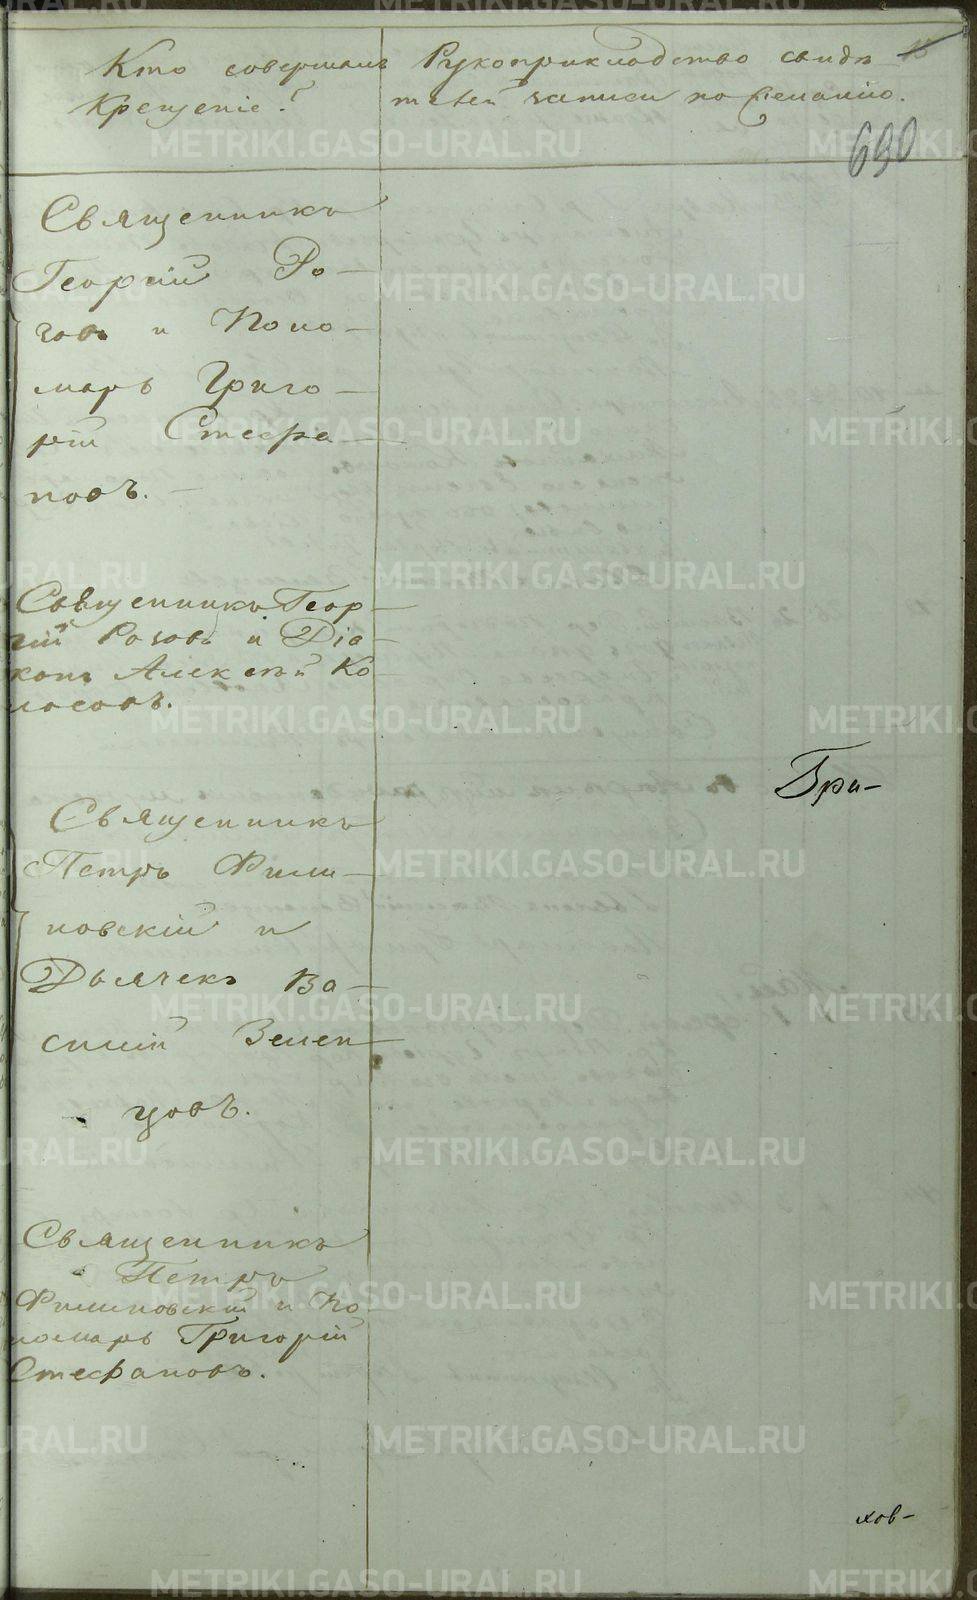 Кто совершалъ
Крещеніе?
Рукоприкладство свидѣ
телей записи по желанію.
15
690
Священникъ
Георгій Ро-
зовъ и Поно-
марь Григо-
рій Стефа-
новъ.
Священникъ Геор-
гій Розовъ и Діа-
конъ Алексѣй Ко-
лосовъ.
Священникъ
Петръ Фили-
новскій и
Дьячекъ Ва-
силій Зелен-
цовъ.
Священникъ
Петръ
Филиновскій и По-
номарь Григорій
Стефановъ.
Гри-
хов-
METRIKI.GASO-URAL.RU